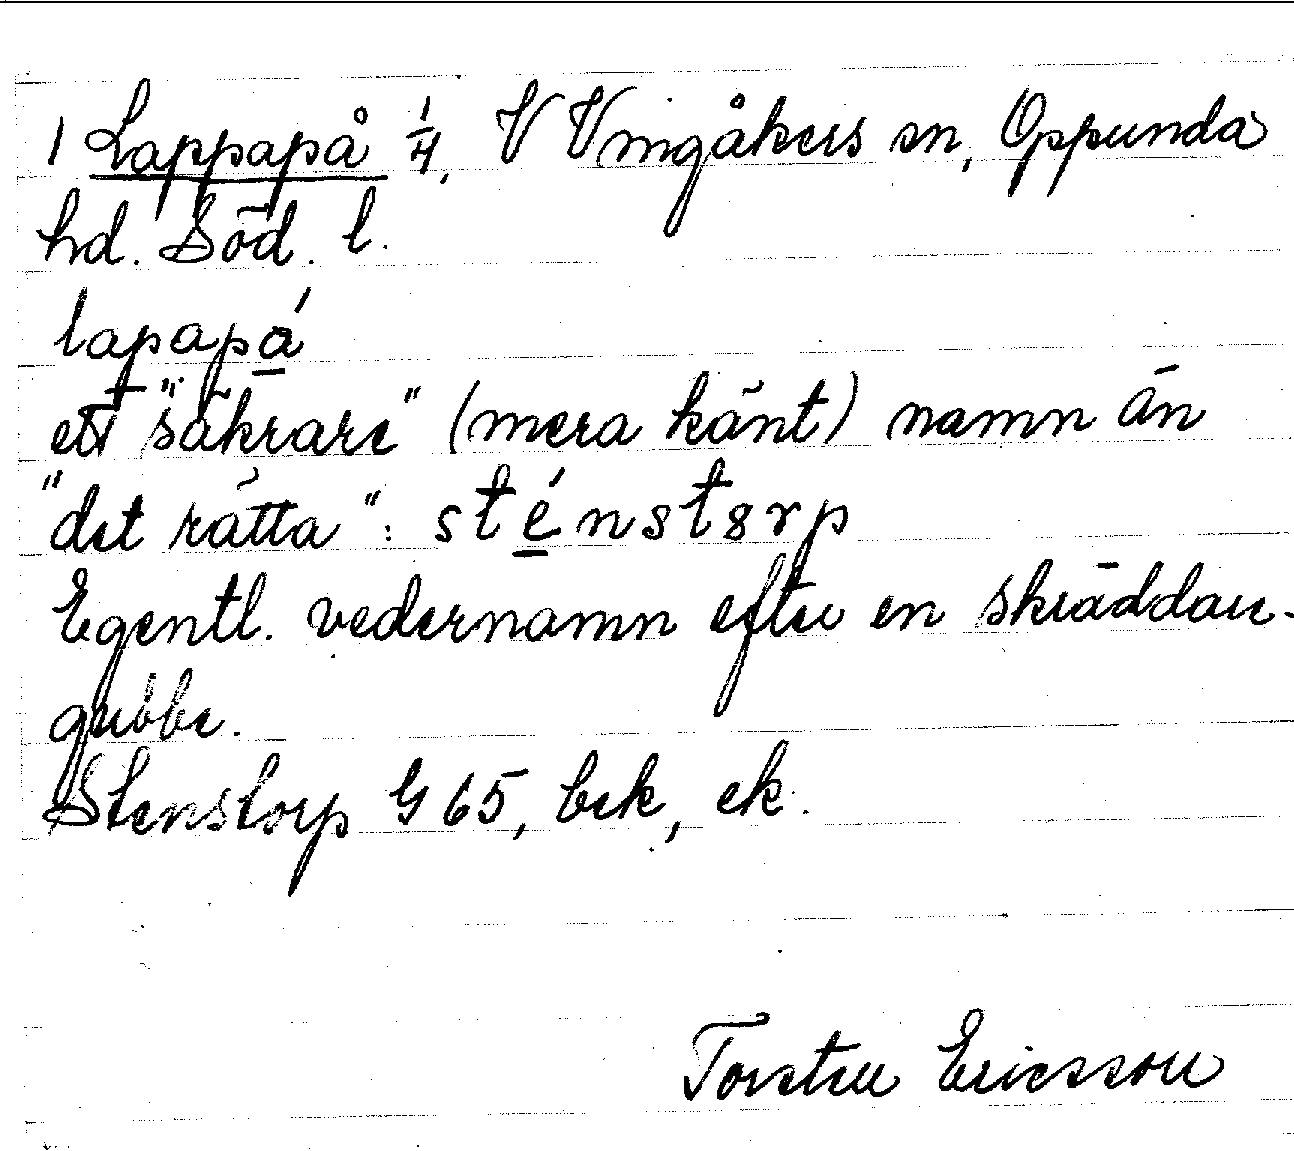 1 Lappapå 1/4, V Vingåkers sn, Oppunda
hd. Söd. l.
lapapá
ett "säkrare" (mera känt) namn än
"det rätta": sténstɤrp
Egentl. vedernamn efter en skräddare-
gubbe.
Stenstorp G 65, bek, ek.
Torsten Ericsson